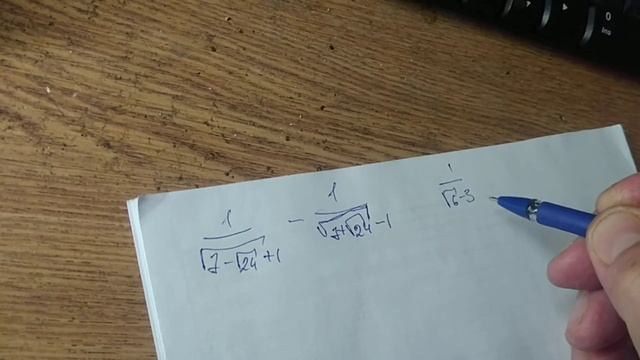 1/(√(7-√24)+1) - 1/(√(7+√24)-1)
1/(√6-3)
0
Ins